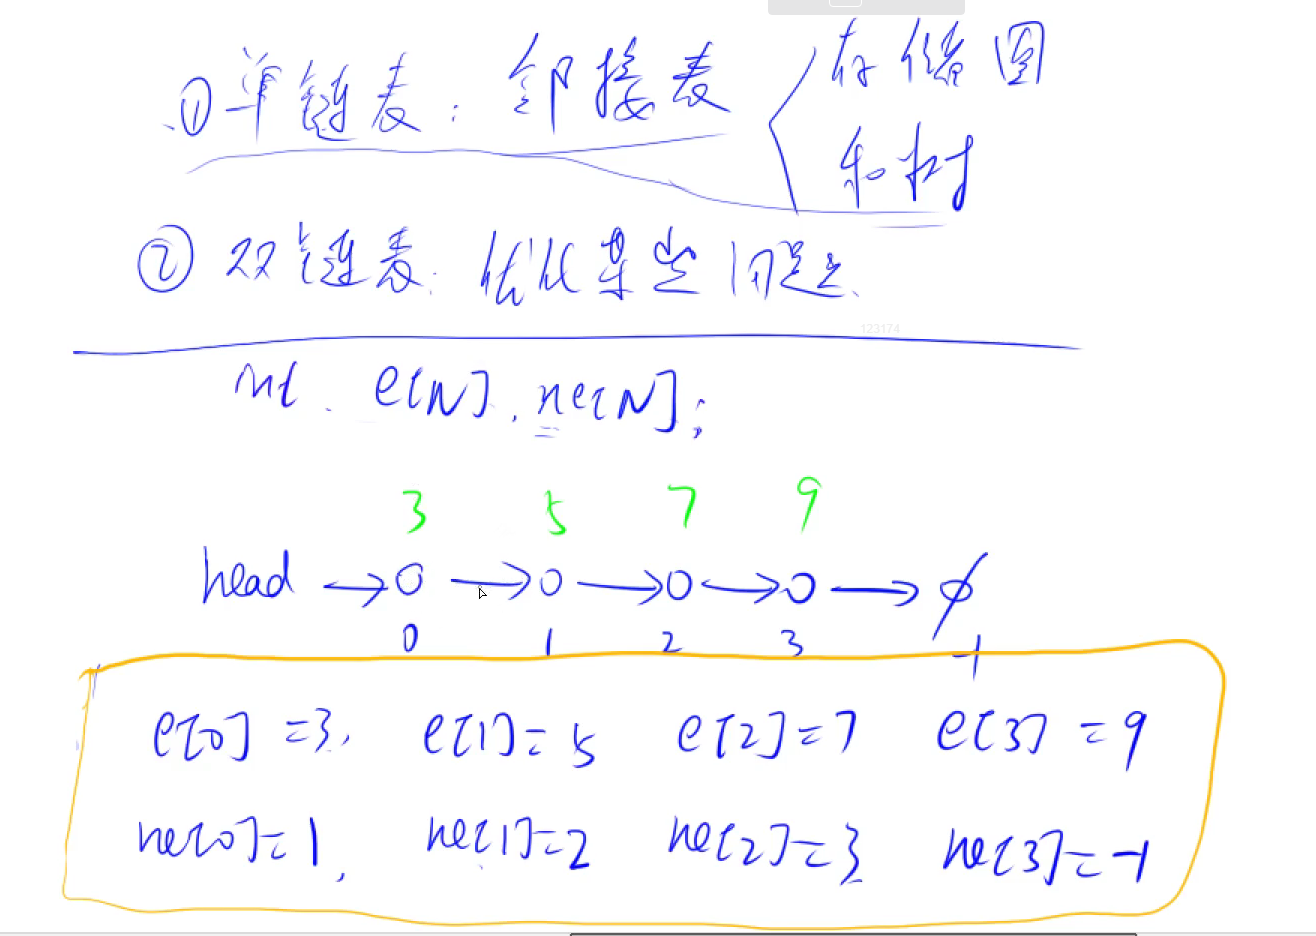 ①单链表：邻接表 存储图
和树
②双链表：优化某些问题.
123174
int e[N], ne[N];
3 5 7 9
head →O →O →O →O → ∅
0 1 2 3 -1
e[0]=3, e[1]=5 e[2]=7 e[3]=9
ne[0]=1, ne[1]=2 ne[2]=3 ne[3]=-1